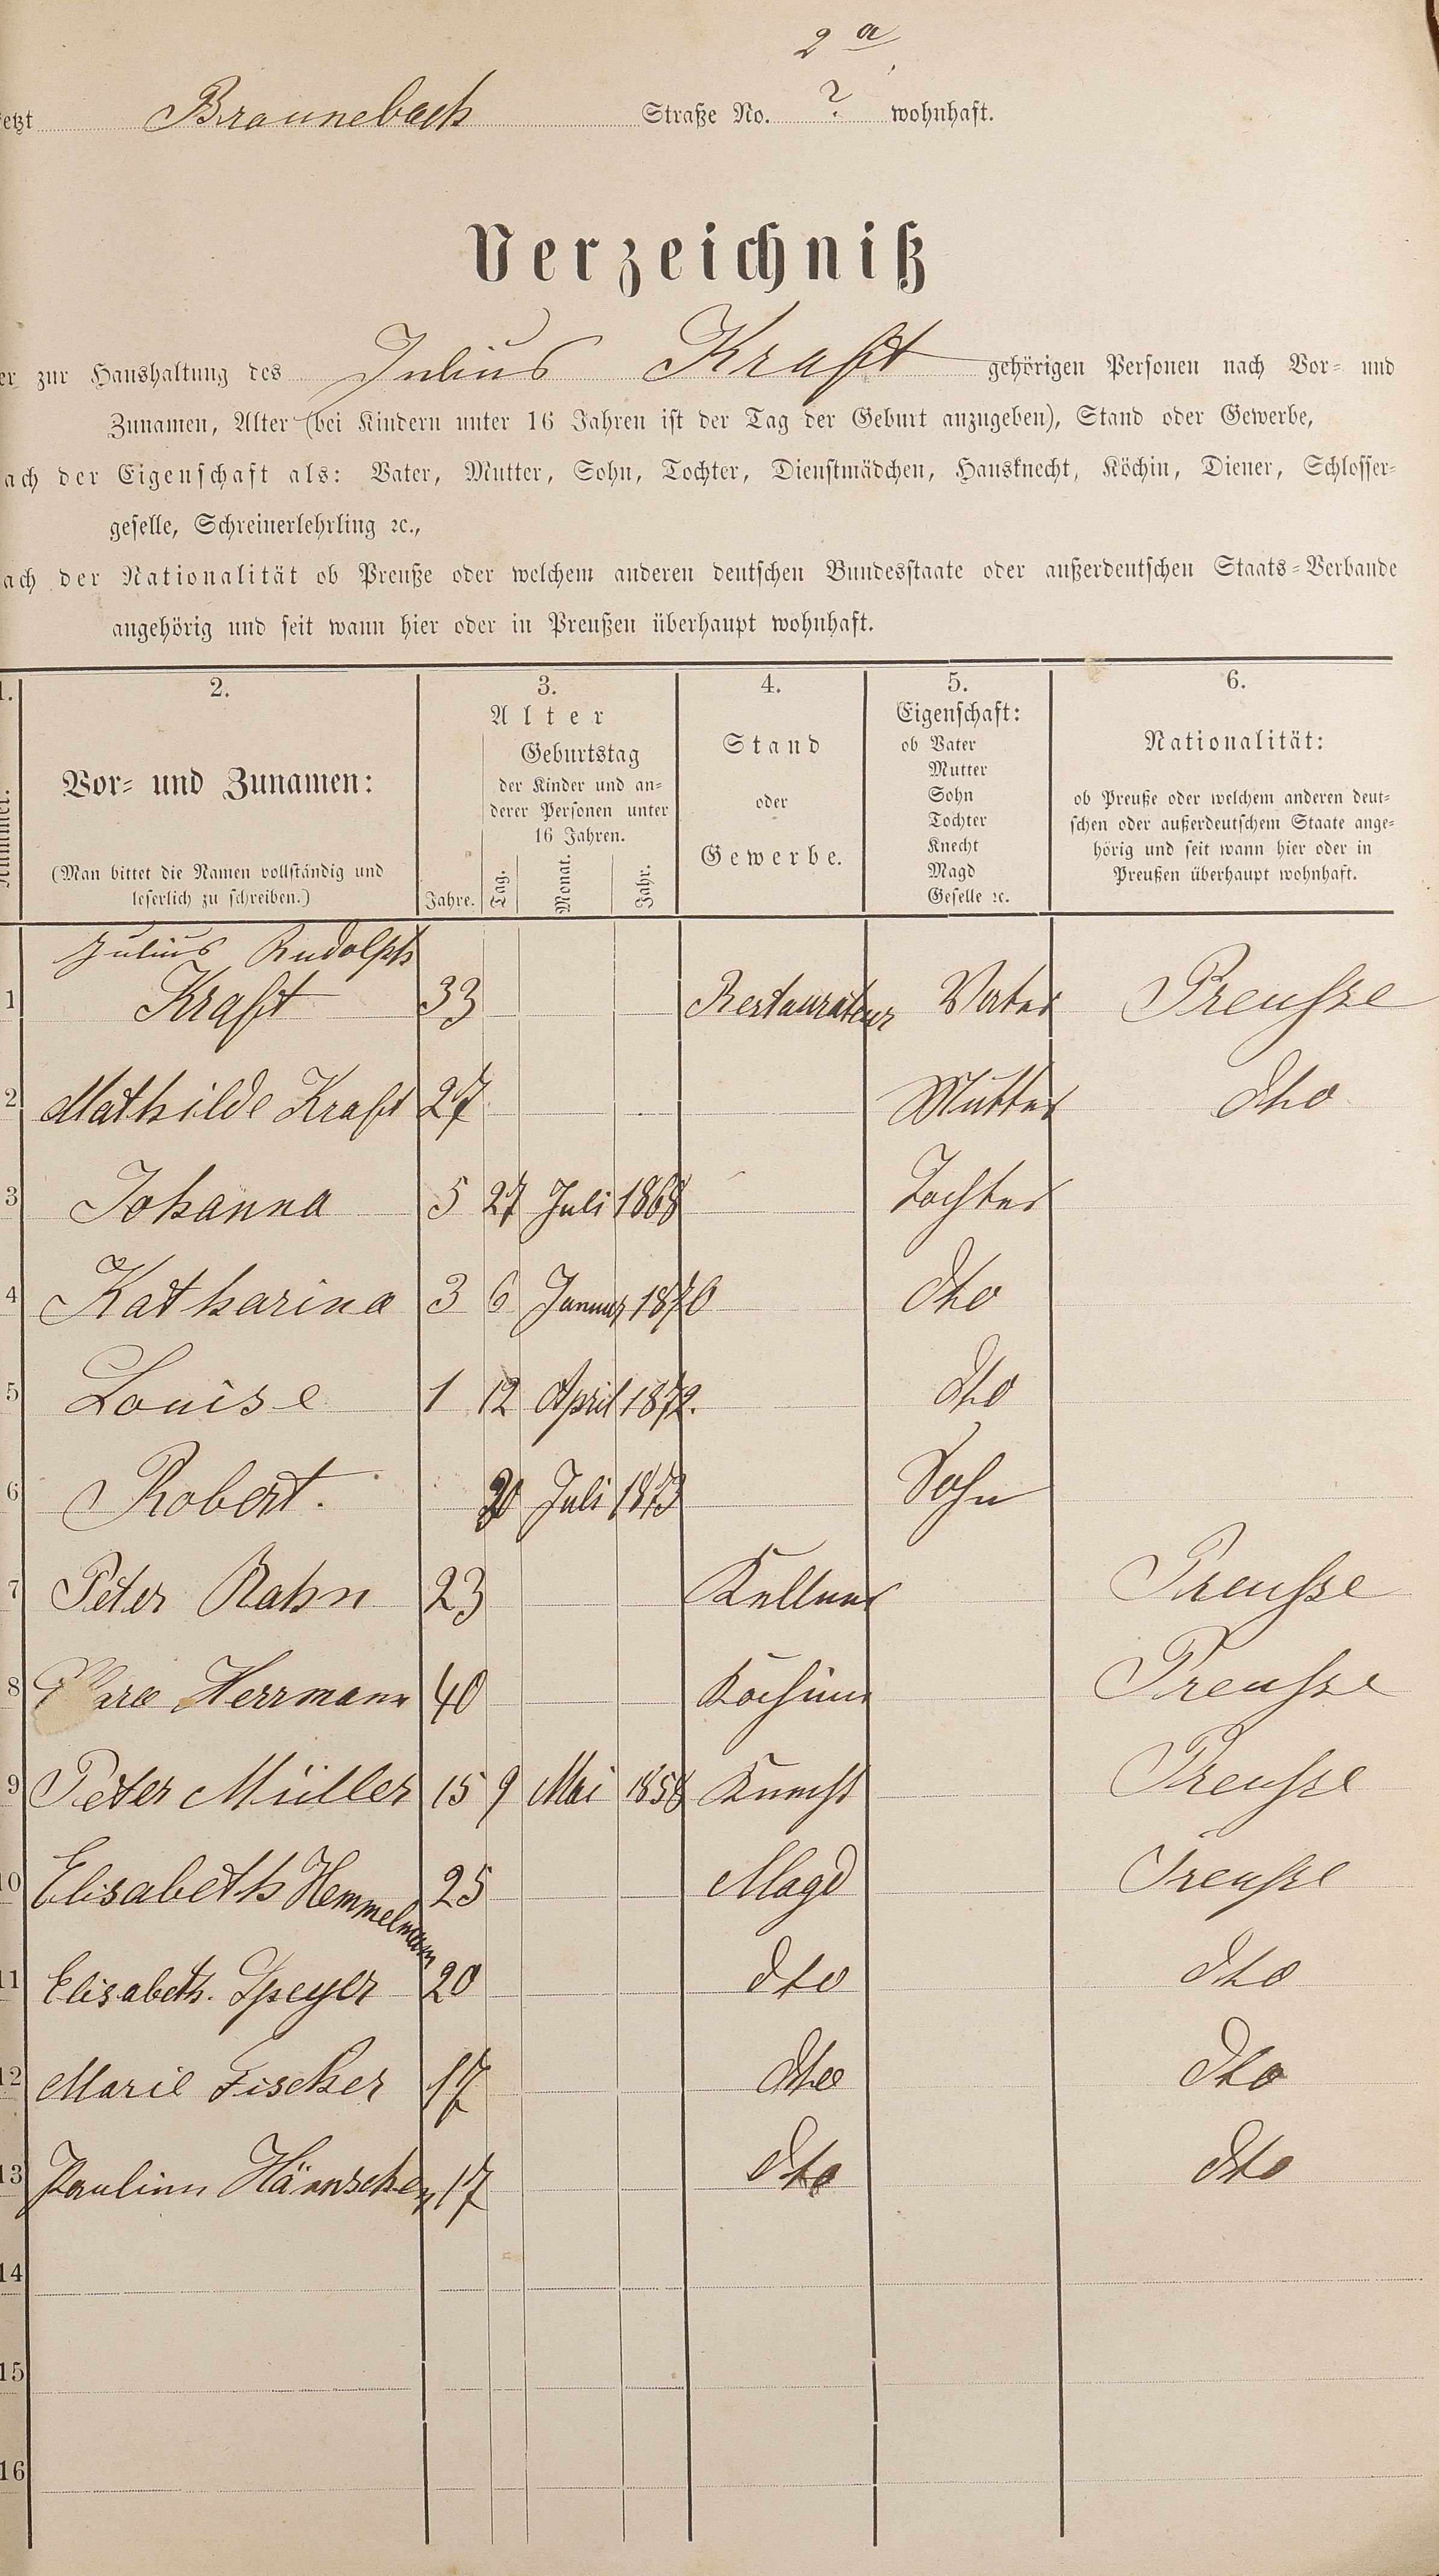 2 a
etzt Braunebach Straße No. ? wohnhaft.
Verzeichniß
er zur Haushaltung des Julius Kraft gehörigen Personen nach Vor- und
Zunamen, Alter (bei Kindern unter 16 Jahren ist der Tag der Geburt anzugeben), Stand oder Gewerbe,
ach der Eigenschaft als: Vater, Mutter, Sohn, Tochter, Dienstmädchen, Hausknecht, Köchin, Diener, Schlosser-
geselle, Schreinerlehrling ꝛc.,
ach der Nationalität ob Preuße oder welchem anderen deutschen Bundesstaate oder außerdeutschen Staats-Verbande
angehörig und seit wann hier oder in Preußen überhaupt wohnhaft.
1. 2. 3. 4. 5. 6.
Nummer.
Vor- und Zunamen:
(Man bittet die Namen vollständig und
leserlich zu schreiben.)
Alter
Geburtstag
der Kinder und an-
derer Personen unter
16 Jahren.
Jahre. Tag. Monat. Jahr.
Stand
oder
Gewerbe.
Eigenschaft:
ob Vater
Mutter
Sohn
Tochter
Knecht
Magd
Geselle ꝛc.
Nationalität:
ob Preuße oder welchem anderen deut-
schen oder außerdeutschem Staate ange-
hörig und seit wann hier oder in
Preußen überhaupt wohnhaft.
Julius Rudolph
1 Kraft 33 Restaurateur Vater Preusse
2 Mathilde Kraft 27 Mutter dto
3 Johanna 5 27 Juli 1868 Tochter
4 Katharina 3 6 Januar 1870 dto
5 Louise 1 12 April 1872. dto
6 Robert. 20 Juli 1873 Sohn
7 Peter Rahn 23 Kellner Preusse
8 Herrmann 40 Köchinn Preusse
9 Peter Müller 15 9 Mai 1858 Knecht Preusse
10 Elisabeth Hemmelmann 25 Magd Preusse
11 Elisabeth. Speyer 20 dto dto
12 Marie Fischer 17 dto dto
13 Paulinn Hänschen 17 dto dto
14
15
16